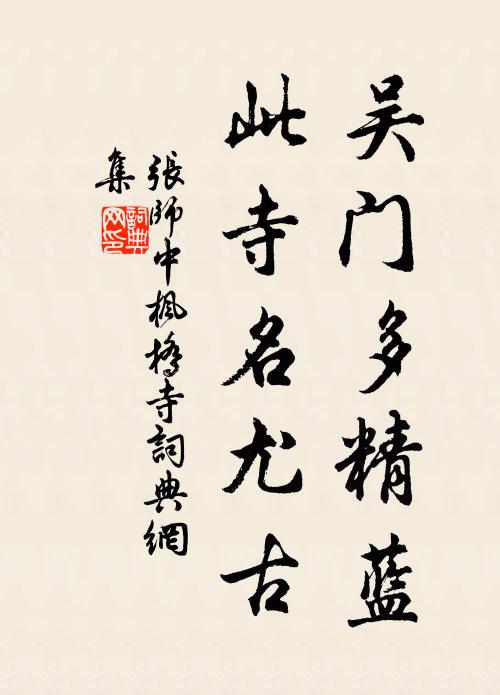 吴门多精蓝
此寺名尤古
張師中楓橋寺詞典網
集
詞典
网印